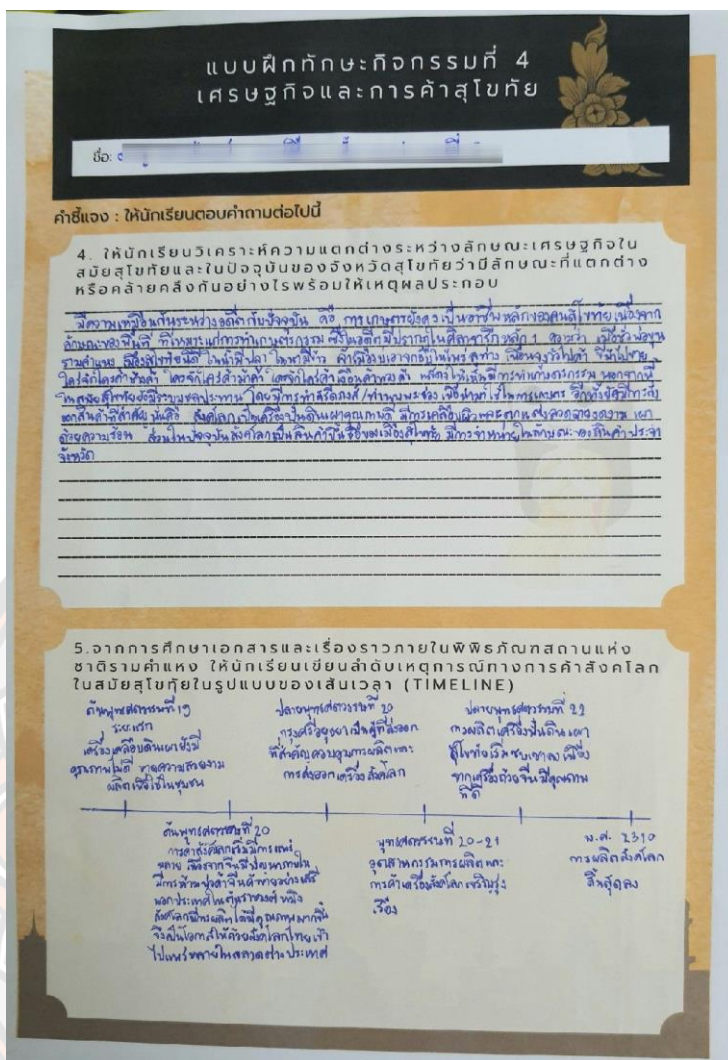 แบบฝึกทักษะกิจกรรมที่ 4
เศรษฐกิจและการค้าสุโขทัย
ชื่อ:
คำชี้แจง : ให้นักเรียนตอบคำถามต่อไปนี้
4. ให้นักเรียนวิเคราะห์ความแตกต่างระหว่างลักษณะเศรษฐกิจใน
สมัยสุโขทัยและในปัจจุบันของจังหวัดสุโขทัยว่ามีลักษณะที่แตกต่าง
หรือคล้ายคลึงกันอย่างไรพร้อมให้เหตุผลประกอบ
มีความเหมือนกันระหว่างอดีตกับปัจจุบัน คือ การเกษตรยังคงเป็นอาชีพหลักของคนสุโขทัยเนื่องจาก
ลักษณะของพื้นที่ ที่เหมาะแก่การทำเกษตรกรรม ซึ่งในอดีตมีปรากฏในศิลาจารึกหลัก 1 ความว่า เมื่อชั่วพ่อขุน
รามคำแหง เมืองสุโขทัยนี้ดี ในน้ำมีปลา ในนามีข้าว เจ้าเมืองบ่เอาจกอบในไพร่ลูท่าง เพื่อนจูงวัวไปค้า ขี่ม้าไปขาย
ใครจักใคร่ค้าช้างค้า ใครจักใคร่ค้าม้าค้า ใครจักใคร่ค้าเงือนค้าทองค้า แสดงให้เห็นมีการทำเกษตรกรรม นอกจากนี้
ในสมัยสุโขทัยยังมีระบบชลประทาน โดยมีการทำสรีดภงส์/ทำนบพระร่วง เพื่อนำมาใช้ในการเกษตร อีกทั้งยังมีการส่ง
ออกสินค้าที่สำคัญ นั่นคือ สังคโลก เป็นเครื่องปั้นดินเผาคุณภาพดี มีการเคลือบผิวและตกแต่งลวดลายงดงาม เผา
ด้วยความร้อน ส่วนในปัจจุบันสังคโลกเป็นสินค้าขึ้นชื่อของเมืองสุโขทัย มีการจำหน่ายในลักษณะของสินค้าประจำ
จังหวัด
5.จากการศึกษาเอกสารและเรื่องราวภายในพิพิธภัณฑสถานแห่ง
ชาติรามคำแหง ให้นักเรียนเขียนลำดับเหตุการณ์ทางการค้าสังคโลก
ในสมัยสุโขทัยในรูปแบบของเส้นเวลา (TIMELINE)
ต้นพุทธศตวรรษที่ 19
ระยะแรก
เครื่องเคลือบดินเผายังมี
คุณภาพไม่ดี ขาดความสวยงาม
ผลิตเพื่อใช้ในชุมชน
ปลายพุทธศตวรรษที่ 20
กรุงศรีอยุธยาเป็นผู้ที่ส่งออก
ที่สำคัญควบคุมการผลิตและ
การส่งออกเครื่องสังคโลก
ปลายพุทธศตวรรษที่ 22
การผลิตเครื่องปั้นดินเผา
สุโขทัยเริ่มซบเซาลง เนื่อง
จากเครื่องถ้วยจีนมีคุณภาพ
ที่ดี
ต้นพุทธศตวรรษที่ 20
การค้าสังคโลกเริ่มมีการแพร่
หลาย เนื่องจากจีนมีปัญหาภายใน
มีการห้ามพ่อค้าจีนค้าขายอย่างเสรี
นอกประเทศในต้นราชวงศ์หมิง
สังคโลกที่ผลิตได้มีคุณภาพมากขึ้น
จึงเป็นโอกาสให้ถ้วยสังคโลกไทยเข้า
ไปแพร่หลายในตลาดต่างประเทศ
พุทธศตวรรษที่ 20-21
อุตสาหกรรมการผลิตและ
การค้าเครื่องสังคโลกเจริญรุ่ง
เรือง
พ.ศ. 2310
การผลิตสังคโลก
สิ้นสุดลง